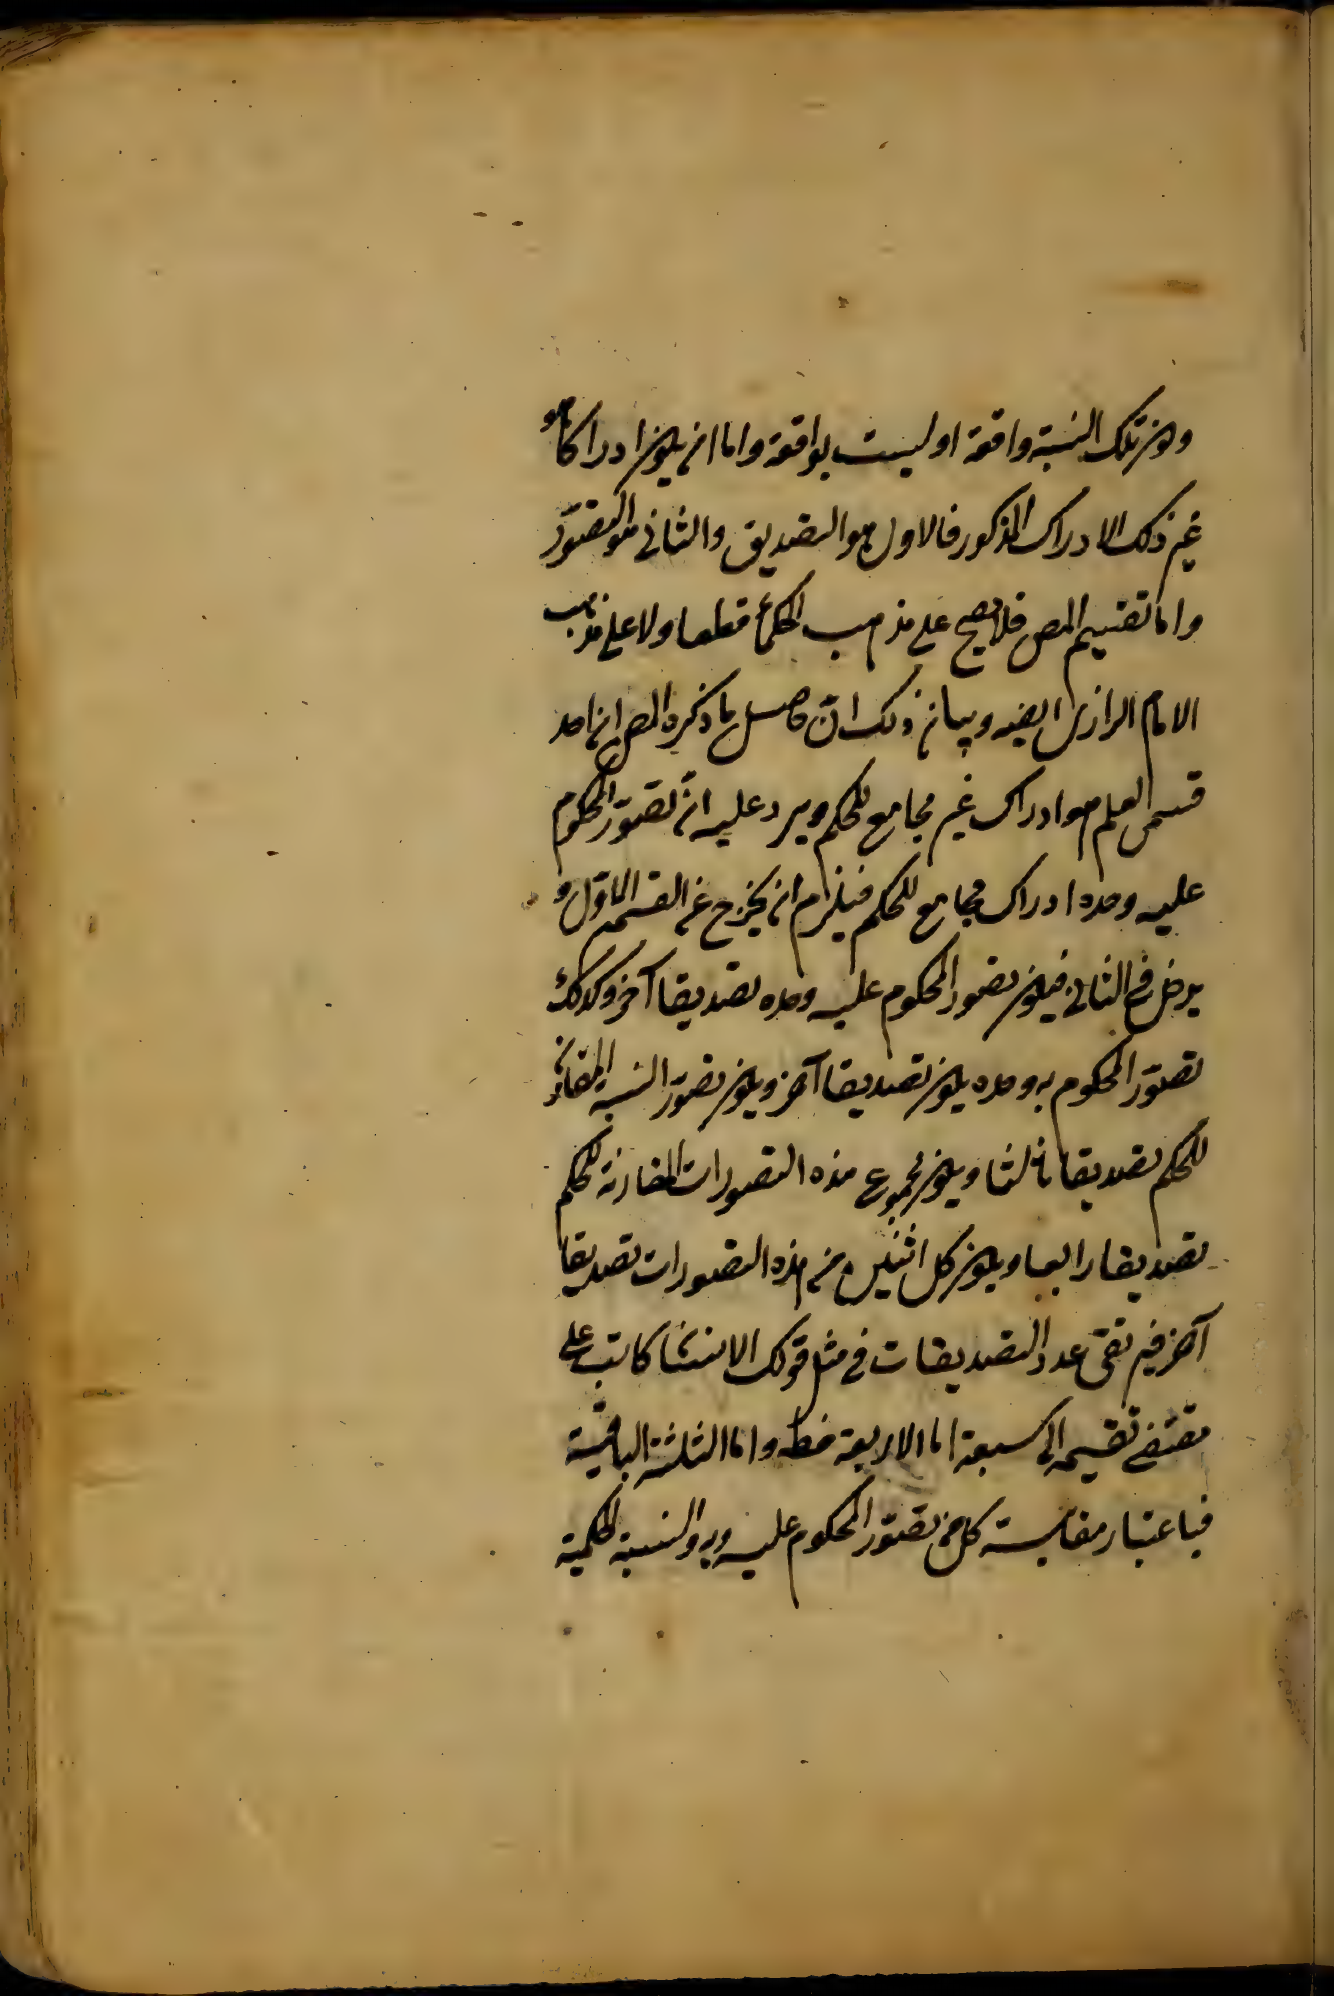 وكون تلك النسبة واقعة او ليست بواقعة واما ان يكون ادراكا هو
غير ذلك الادراك المذكور فالاول هو التصديق والثاني هو التصوّر
واما تقسيم المص فلا يصح على مذهب الحكمأ قطعا ولا على مذهب
الامام الرازى ايضه وبيان ذلك انّ حاصل ما ذكره المص ان احد
قسمى العلم هو ادراك غير مجامع للحكم ويرد عليه انّ تصوّر المحكوم
عليه وحده ادراك مجامع للحكم فيلزم ان يخرج عن القسم الاوّل و
يدخل في الثاني فيكون تصور المحكوم عليه وحده تصديقا آخر وكذلك
تصوّر المحكوم به وحده يكون تصديقا آخر ويكون تصوّر النسبة المقارن
للحكم تصديقا ثالثا ويكون مجموع هذه التصورات المقارنة للحكم
تصديقا رابعا ويكون كل اثنين من هذه التصورات تصديقا
آخر فيرتقى عدد التصديقات في مثل قولك الانسان كاتب على
مقتضى تقسيمه الى سبعة اما الاربعة فظه واما الثلثة الباقية
فباعتبار مقايسة كل من تصوّر المحكوم عليه وبه والنسبة الحكمية